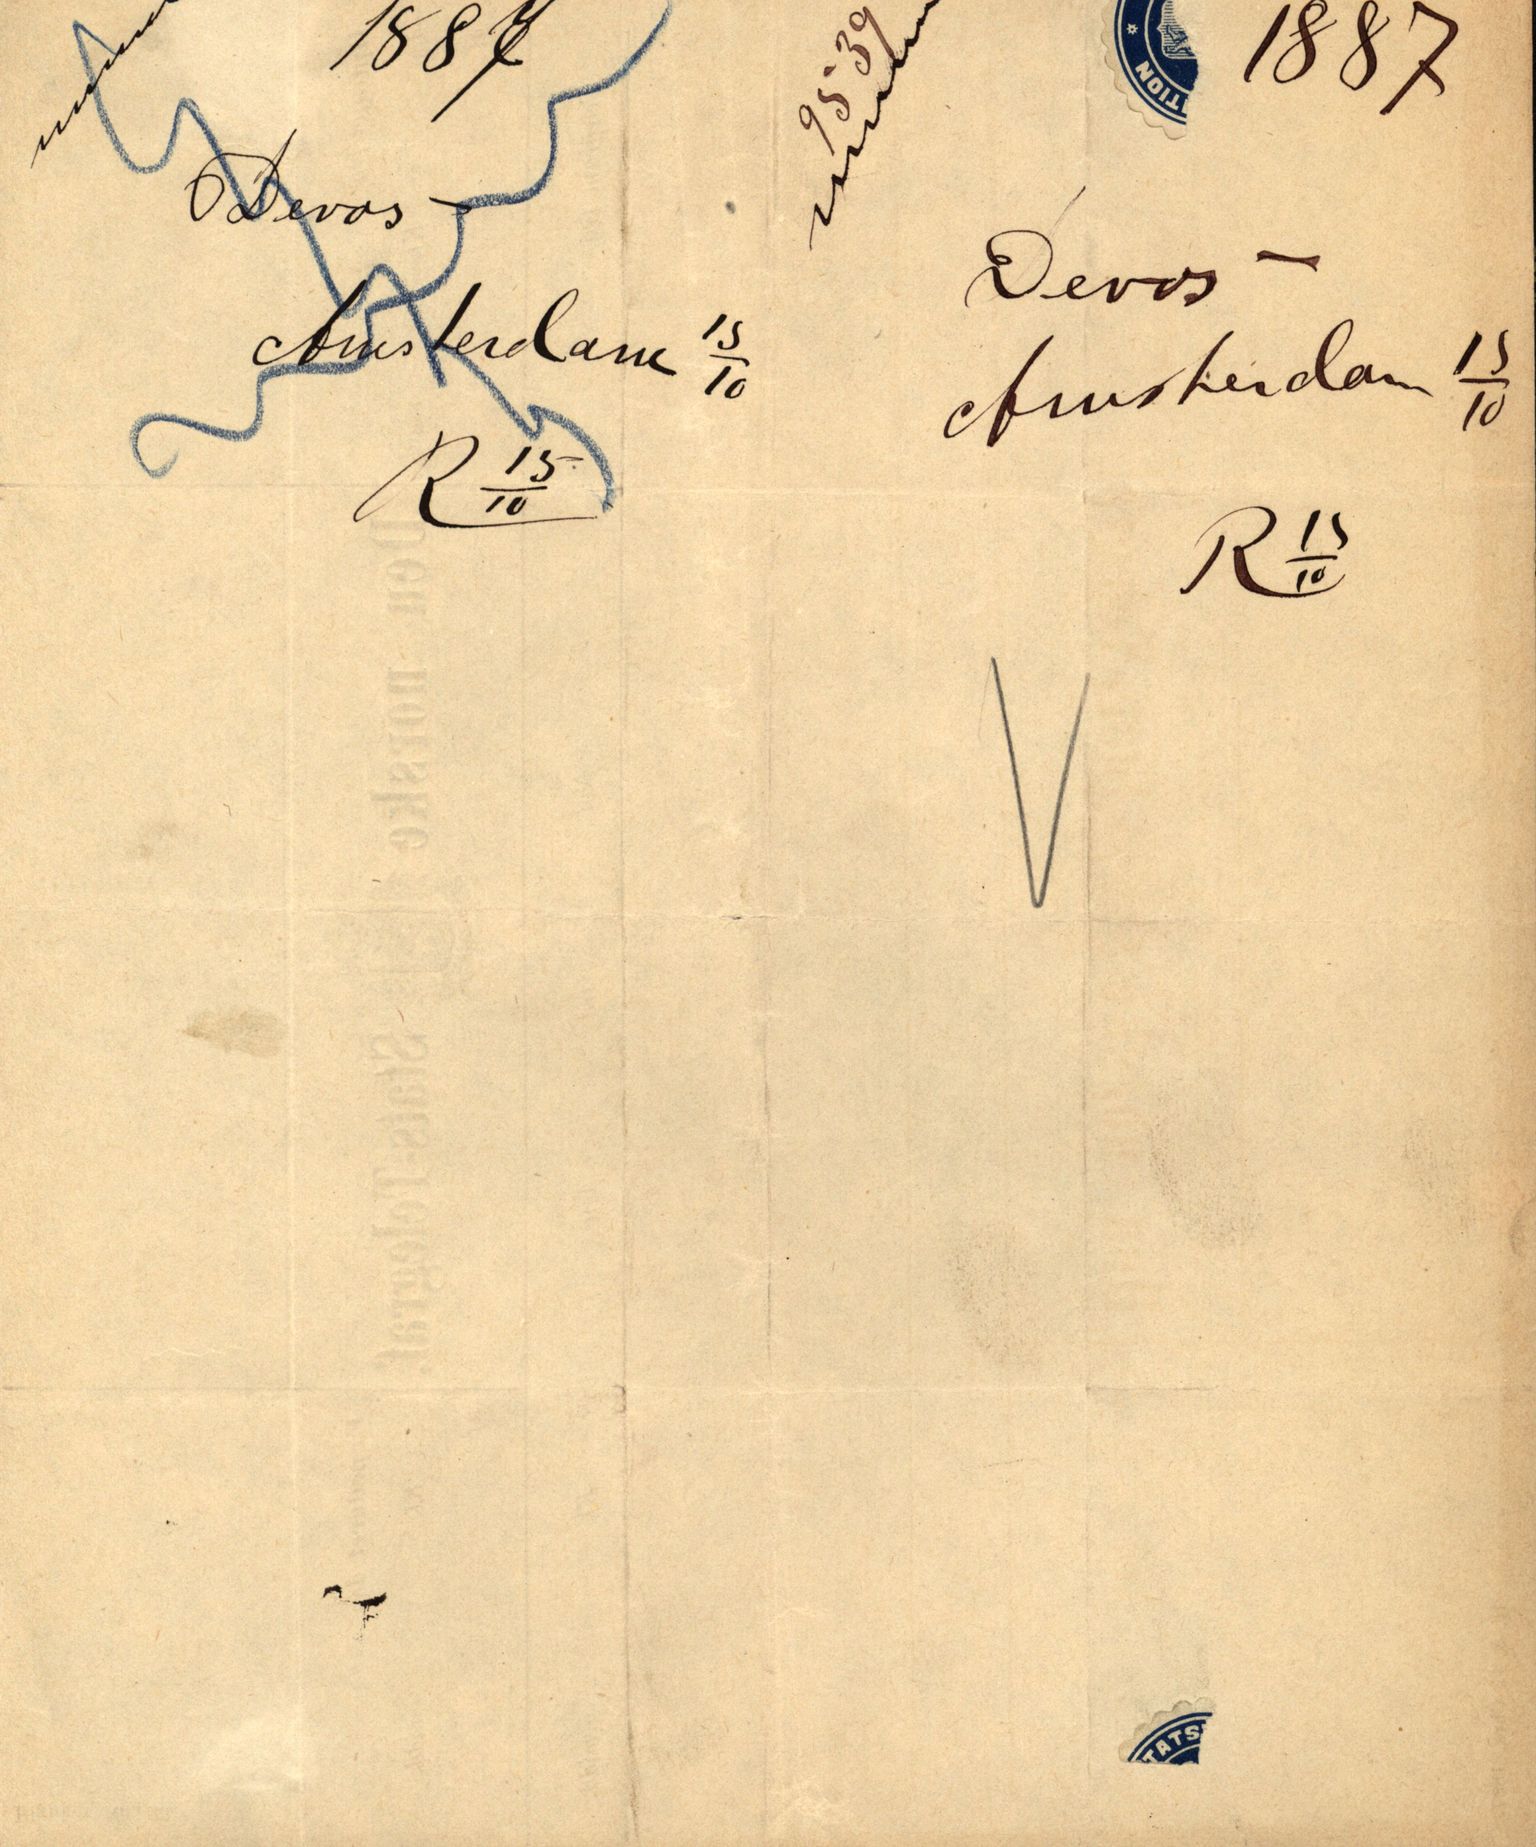 1887
Devos –
Amsterdam 15/10
R 15/10
9539
1887
Devos –
Amsterdam 15/10
R 15/10
V
TION
TATS
Den norske Stats-Telegraf